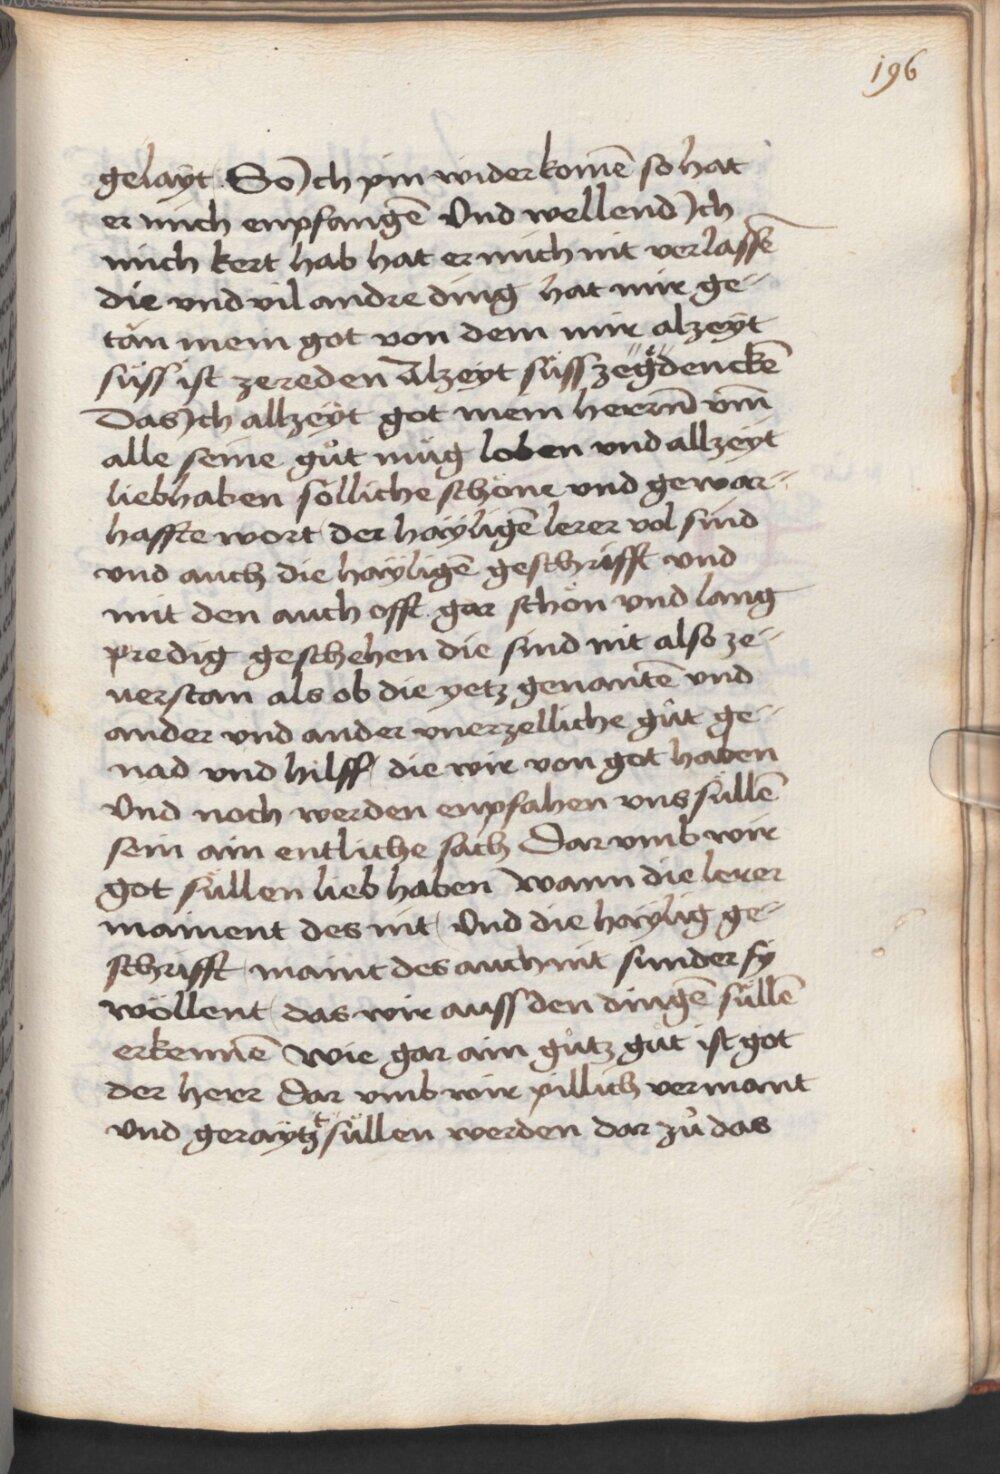 196
gelayt. So Ich pin wider komē so hat
er mich enpfangē Und wellend Ich
mich kert hab hat er mich nit verlassē
die vnd vil andre ding hat mir ge-
tan mein got von dem mir alzeyt
süss ist zereden Alzeyt süss zegedenckē
Das Ich allzeyt got mein herrn̄ vm̄
alle seine gůt mug loben vnd allzeyt
liebhaben sölliche schöne vnd gewar-
haffte wort der hayligē lerer vol sind
vnd auch die hayligē geschrifft vnd
mit den auch offt gar schön vnd lang
predig geschehen die sind nit also ze-
uerstan als ob die yetz genantē vnd
ander vnd ander vnerzelliche gůt ge-
nad vnd hilff die wir von got haben
Und noch werden enpfahen vns süllē
sein ain entliche sach Dar vmb wir
got süllen lieb haben Wann die lerer
mainent des nit Und die haylig ge-
schrifft maint des auch nit sunder sy
wöllent das wir auss den dingē süllē
erkennē Wie gar ain gůtz gůt ist got
der herr Dar vmb wir pillich vermant
vnd geraytzt süllen werden dar zů das